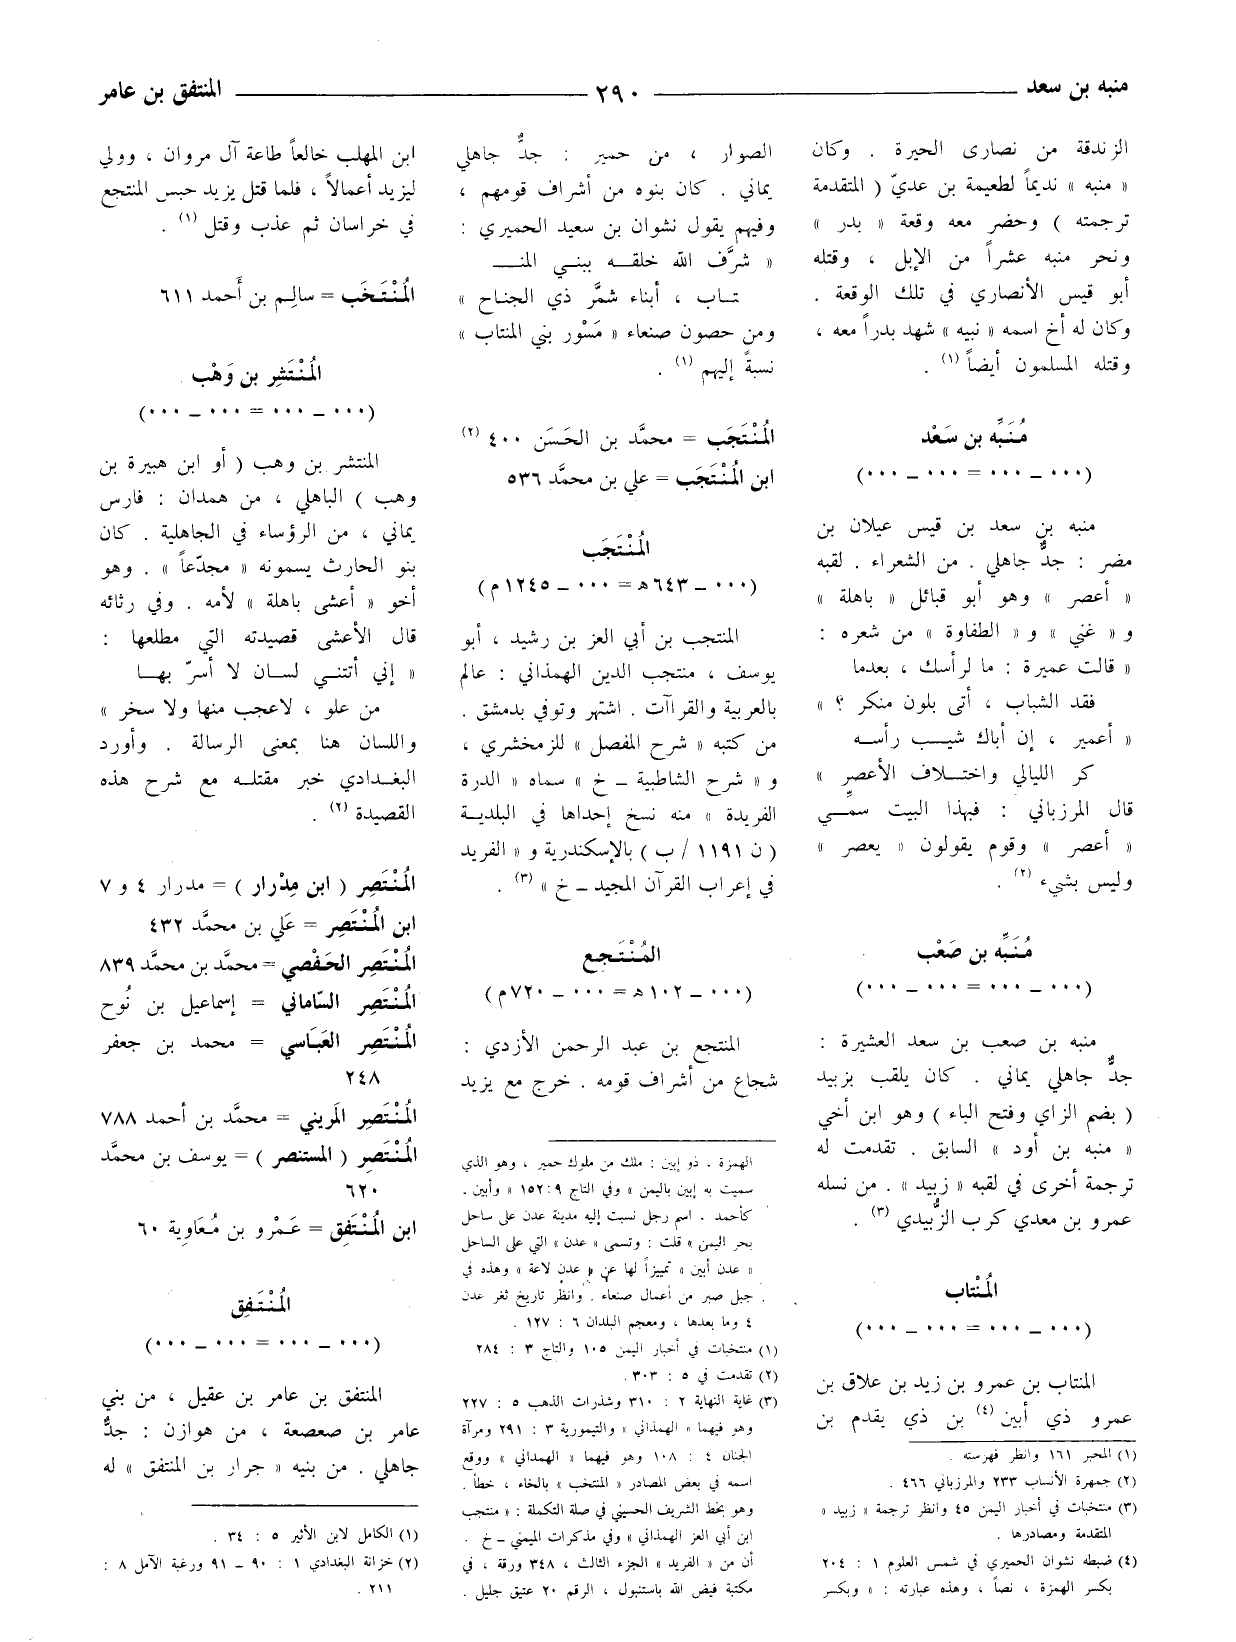 منبه بن سعد ٢٩٠ المنتفق بن عامر
الزندقة من نصارى الحيرة . وكان
« منبه » نديماً لطعيمة بن عديّ ( المتقدمة
ترجمته ) وحضر معه وقعة « بدر »
ونحر منبه عشراً من الإبل ، وقتله
أبو قيس الأنصاري في تلك الوقعة .
وكان له أخ اسمه « نبيه » شهد بدراً معه ،
وقتله المسلمون أيضاً (١) .
مُنَبِّه بن سَعْد
(٠٠٠ ــ ٠٠٠ = ٠٠٠ ــ ٠٠٠)
منبه بن سعد بن قيس عيلان بن
مضر : جدٌّ جاهلي . من الشعراء . لقبه
« أعصر » وهو أبو قبائل « باهلة »
و « غني » و « الطفاوة » من شعره :
« قالت عميرة : ما لرأسك ، بعدما
فقد الشباب ، أتى بلون منكر ؟ »
« أعمير ، إن أباك شيب رأسه
كر الليالي واختلاف الأعصر »
قال المرزباني : فبهذا البيت سمِّي
« أعصر » وقوم يقولون « يعصر »
وليس بشيء (٢) .
مُنَبِّه بن صَعْب
(٠٠٠ ــ ٠٠٠ = ٠٠٠ ــ ٠٠٠)
منبه بن صعب بن سعد العشيرة :
جدٌّ جاهلي يماني . كان يلقب بزبيد
( بضم الزاي وفتح الباء ) وهو ابن أخي
« منبه بن أود » السابق . تقدمت له
ترجمة أخرى في لقبه « زبيد » . من نسله
عمرو بن معدي كرب الزُّبيدي (٣) .
المُنْتاب
(٠٠٠ ــ ٠٠٠ = ٠٠٠ ــ ٠٠٠)
المنتاب بن عمرو بن زيد بن علاق بن
عمرو ذي أبين (٤) بن ذي يقدم بن
(١) المحبر ١٦١ وانظر فهرسته .
(٢) جمهرة الأنساب ٢٣٣ والمرزباني ٤٦٦
(٣) منتخبات في أخبار اليمن ٤٥ وانظر ترجمة « زبيد »
المتقدمة ومصادرها .
(٤) ضبطه نشوان الحميري في شمس العلوم ١ : ٢٠٤
بكسر الهمزة ، نصاً ، وهذه عبارته : « وبكسر
الصوار ، من حمير : جدٌّ جاهلي
يماني . كان بنوه من أشراف قومهم ،
وفيهم يقول نشوان بن سعيد الحميري :
« شرَّف الله خلقه ببني المنـ
ـتاب ، أبناء شمَّر ذي الجناح »
ومن حصون صنعاء « مَسْور بني المنتاب »
نسبةً إليهم (١) .
المُنْتَجَب = محمَّد بن الحَسَن ٤٠٠ (٢)
ابن المُنْتَجَب = علي بن محمَّد ٥٣٦
المُنْتَجَب
(٠٠٠ ــ ٦٤٣ هـ = ٠٠٠ ــ ١٢٤٥ م)
المنتجب بن أبي العز بن رشيد ، أبو
يوسف ، منتجب الدين الهمذاني : عالم
بالعربية والقراآت . اشتهر وتوفي بدمشق .
من كتبه « شرح المفصل » للزمخشري ،
و « شرح الشاطبية ــ خ » سماه « الدرة
الفريدة » منه نسخ إحداها في البلدية
( ن ١١٩١ / ب ) بالإسكندرية و « الفريد
في إعراب القرآن المجيد ــ خ » (٣) .
المُنْتَجِع
(٠٠٠ ــ ١٠٢ هـ = ٠٠٠ ــ ٧٢٠ م)
المنتجع بن عبد الرحمن الأزدي :
شجاع من أشراف قومه . خرج مع يزيد
الهمزة . ذو إبين : ملك من ملوك حمير ، وهو الذي
سميت به إبين باليمن » وفي التاج ٩ : ١٥٢ « وأبين .
كأحمد . اسم رجل نسبت إليه مدينة عدن على ساحل
بحر اليمن » قلت : وتسمى « عدن » التي على الساحل
« عدن أبين » تمييزاً لها عن « عدن لاعة » وهذه في
جبل صبر من أعمال صنعاء . وانظر تاريخ ثغر عدن
٤ وما بعدها ، ومعجم البلدان ٦ : ١٢٧ .
(١) منتخبات في أخبار اليمن ١٠٥ والتاج ٣ : ٢٨٤
(٢) تقدمت في ٥ : ٣٠٣ .
(٣) غاية النهاية ٢ : ٣١٠ وشذرات الذهب ٥ : ٢٢٧
وهو فيهما « الهمذاني » والتيمورية ٣ : ٢٩١ ومرآة
الجنان ٤ : ١٠٨ وهو فيهما « الهمداني » ووقع
اسمه في بعض المصادر « المنتخب » بالخاء ، خطأ .
وهو بخط الشريف الحسيني في صلة التكملة : « منتجب
ابن أبي العز الهمذاني » وفي مذكرات الميمني ــ خ .
أن من « الفريد » الجزء الثالث ، ٣٤٨ ورقة ، في
مكتبة فيض الله باستنبول ، الرقم ٢٠ عتيق جليل .
ابن المهلب خالعاً طاعة آل مروان ، وولي
ليزيد أعمالاً ، فلما قتل يزيد حبس المنتجع
في خراسان ثم عذب وقتل (١) .
المُنْتَخَب = سالِم بن أَحمد ٦١١
المُنْتَشِر بن وَهْب
(٠٠٠ ــ ٠٠٠ = ٠٠٠ ــ ٠٠٠)
المنتشر بن وهب ( أو ابن هبيرة بن
وهب ) الباهلي ، من همدان : فارس
يماني ، من الرؤساء في الجاهلية . كان
بنو الحارث يسمونه « مجدّعاً » . وهو
أخو « أعشى باهلة » لأمه . وفي رثائه
قال الأعشى قصيدته التي مطلعها :
« إني أتتني لسان لا أسرّ بها
من علو ، لاعجب منها ولا سخر »
واللسان هنا بمعنى الرسالة . وأورد
البغدادي خبر مقتله مع شرح هذه
القصيدة (٢) .
المُنْتَصِر ( ابن مِدْرار ) = مدرار ٤ و ٧
ابن المُنْتَصِر = عَلي بن محمَّد ٤٣٢
المُنْتَصِر الحَفْصي = محمَّد بن محمَّد ٨٣٩
المُنْتَصِر السّاماني = إسماعيل بن نُوح
المُنْتَصِر العَبَاسي = محمد بن جعفر
٢٤٨
المُنْتَصِر المَريني = محمَّد بن أحمد ٧٨٨
المُنْتَصِر ( المستنصر ) = يوسف بن محمَّد
٦٢٠
ابن المُنْتَفِق = عَمْرو بن مُعَاوية ٦٠
المُنْتَفِق
(٠٠٠ ــ ٠٠٠ = ٠٠٠ ــ ٠٠٠)
المنتفق بن عامر بن عقيل ، من بني
عامر بن صعصعة ، من هوازن : جدٌّ
جاهلي . من بنيه « جرار بن المنتفق » له
(١) الكامل لابن الأثير ٥ : ٣٤ .
(٢) خزانة البغدادي ١ : ٩٠ ــ ٩١ ورغبة الآمل ٨ :
٢١١ .